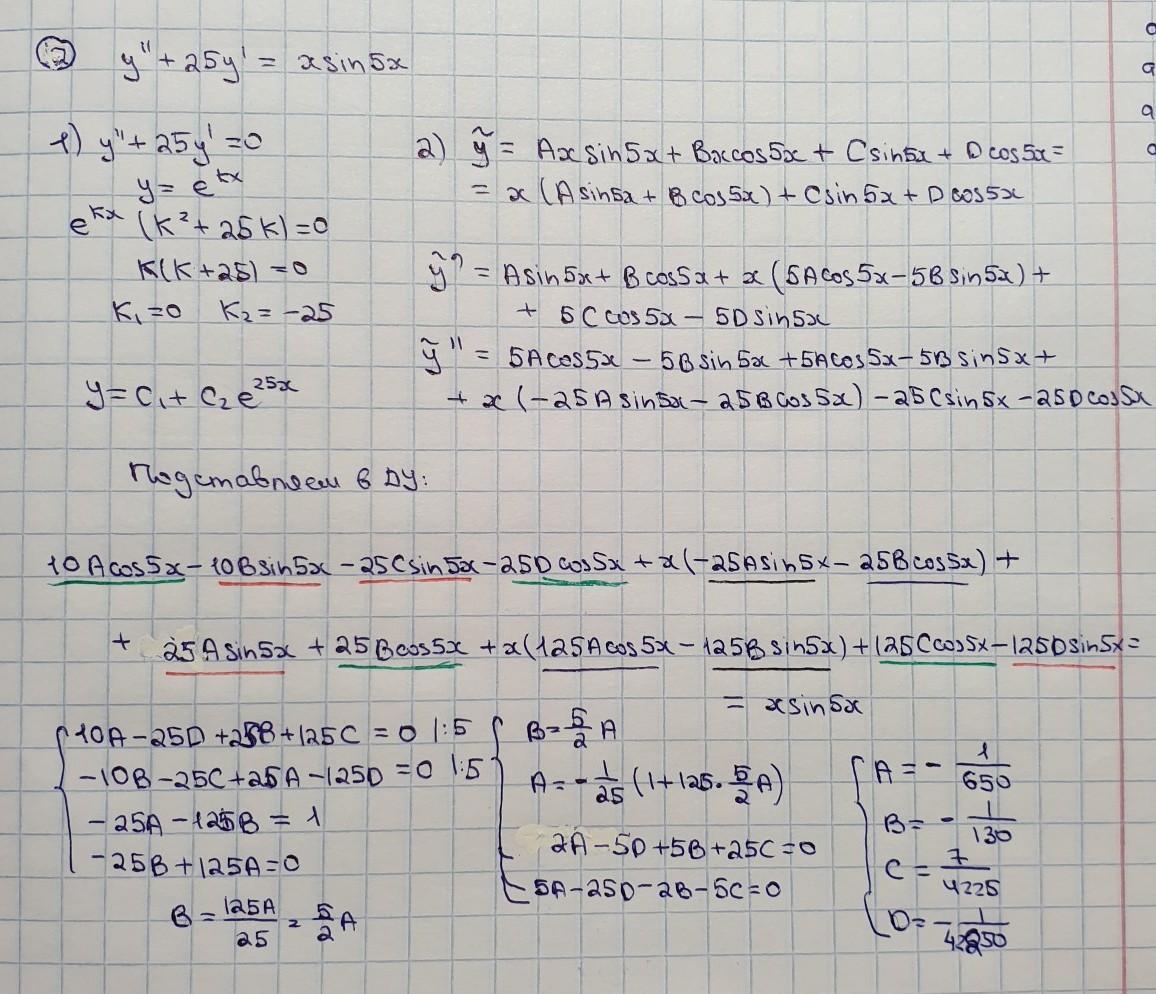 ② y'' + 25y' = x sin5x
1) y'' + 25y' = 0
y = e^{kx}
e^{kx} (k² + 25k) = 0
k(k + 25) = 0
k₁ = 0 k₂ = -25
y = C₁ + C₂ e^{25x}
2) ỹ = Ax sin5x + Bx cos5x + C sin5x + D cos5x =
= x (A sin5x + B cos5x) + C sin5x + D cos5x
ỹ' = A sin5x + B cos5x + x (5A cos5x - 5B sin5x) +
+ 5C cos5x - 5D sin5x
ỹ'' = 5A cos5x - 5B sin5x + 5A cos5x - 5B sin5x +
+ x (-25A sin5x - 25B cos5x) - 25C sin5x - 25D cos5x
Подставляем в ДУ:
10A cos5x - 10B sin5x - 25C sin5x - 25D cos5x + x(-25A sin5x - 25B cos5x) +
+ 25A sin5x + 25B cos5x + x(125A cos5x - 125B sin5x) + 125C cos5x - 125D sin5x =
= x sin5x
{ 10A - 25D + 25B + 125C = 0 |:5
-10B - 25C + 25A - 125D = 0 |:5
-25A - 125B = 1
-25B + 125A = 0
B = 125A/25 = 5/2 A
{ B = 5/2 A
A = -1/25 (1 + 125 · 5/2 A)
2A - 5D + 5B + 25C = 0
5A - 25D - 2B - 5C = 0
{ A = - 1/650
B = - 1/130
C = 7/4225